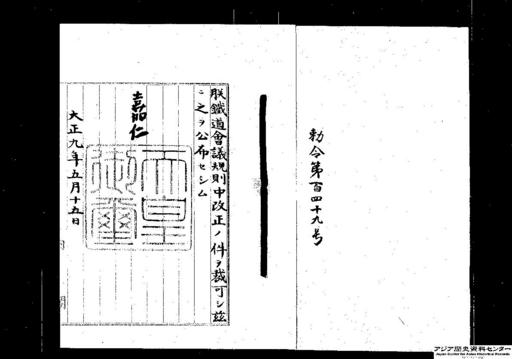 勅令第百四十九号
朕鐵道會議規則中改正ノ件ヲ裁可シ茲
ニ之ヲ公布セシム
嘉仁
天皇
御璽
大正九年五月十五日
アジア歴史資料センター
Japan Center for Asian Historical Records